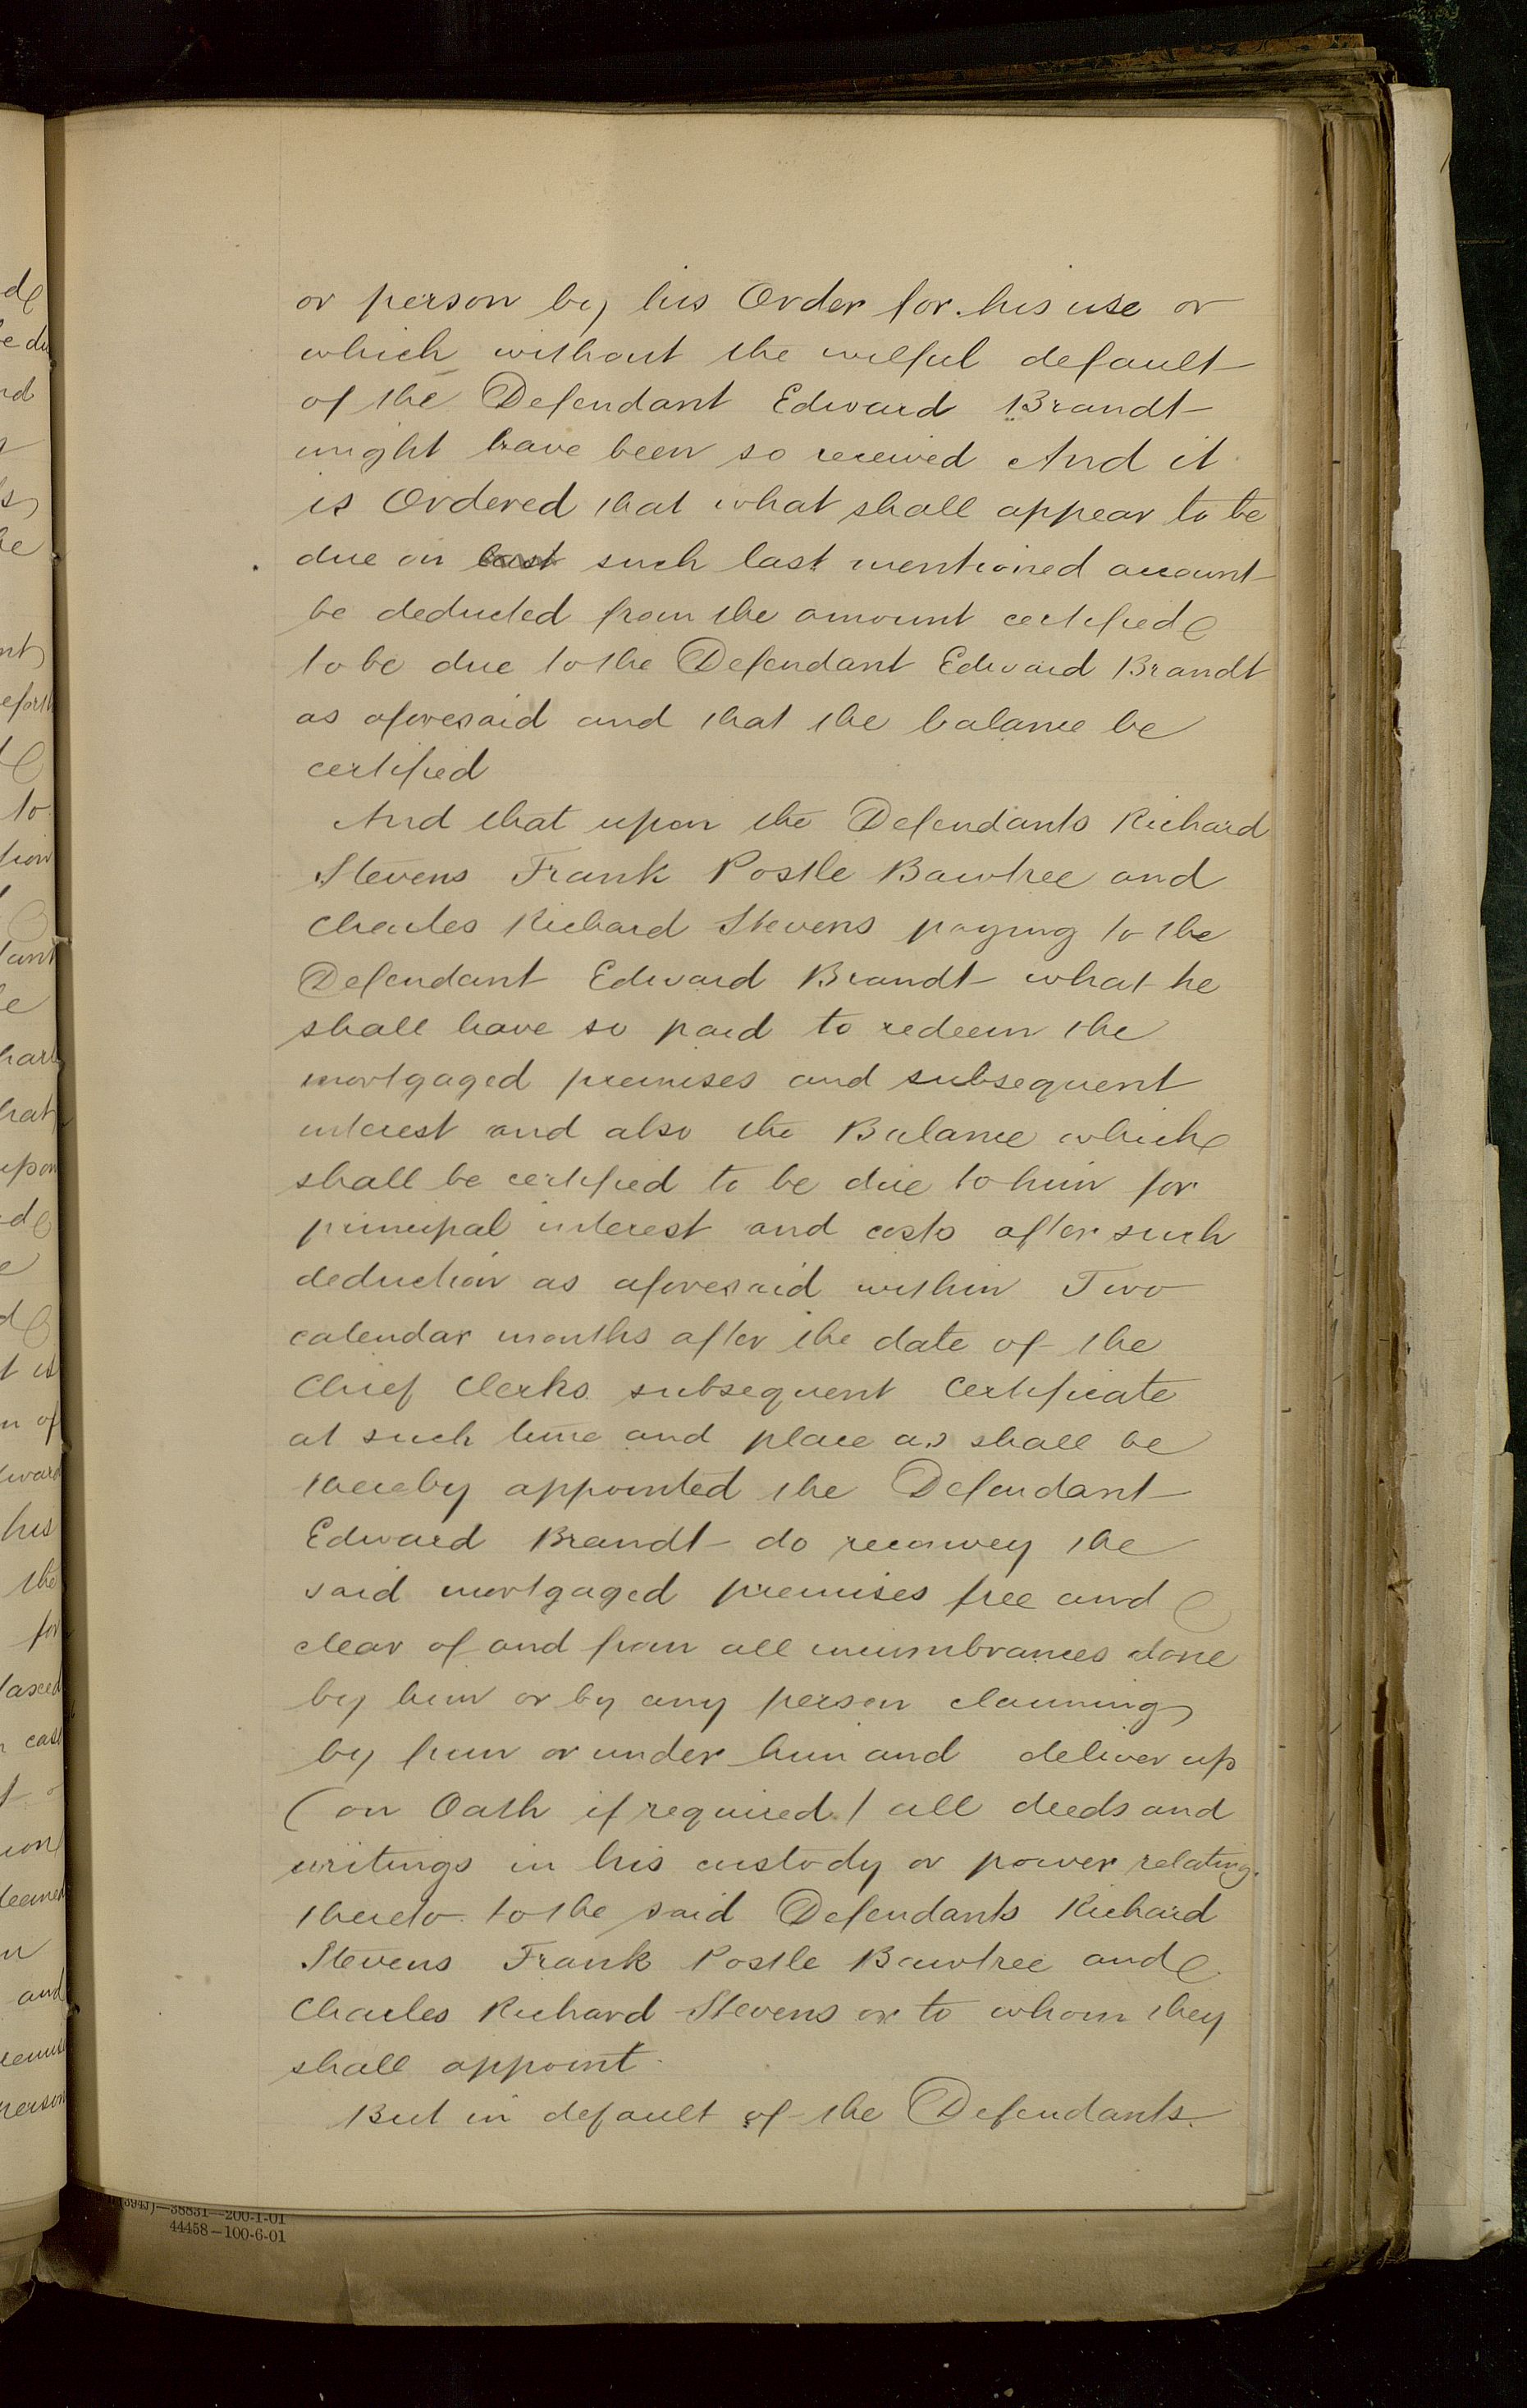 or person by his Order for his use or
which without the wilful default
of the Defendant Edward Brandt
might have been so received And it
is Ordered that what shall appear to be
due on last such last mentioned account
be deducted from the amount certified
to be due to the Defendant Edward Brandt
as aforesaid and that the balance be
certified
And that upon the Defendants Richard
Stevens Frank Postle Bawtree and
Charles Richard Stevens paying to the
Defendant Edward Brandt what he
shall have so paid to redeem the
mortgaged premises and subsequent
interest and also the Balance which
shall be certified to be due to him for
principal interest and costs after such
deduction as aforesaid within Two
calendar months after the date of the
Chief Clerks subsequent Certificate
at such time and place as shall be
thereby appointed the Defendant
Edward Brandt do reconvey the
said mortgaged premises free and
clear of and from all incumbrances done
by him or by any person claiming
by from or under him and deliver up
(on Oath if required) all deeds and
writings in his custody or power relating
thereto to the said Defendants Richard
Stevens Frank Postle Bawtree and
Charles Richard Stevens or to whom they
shall appoint.
But in default of the Defendants
38831—200-1-01
44458—100-6-01